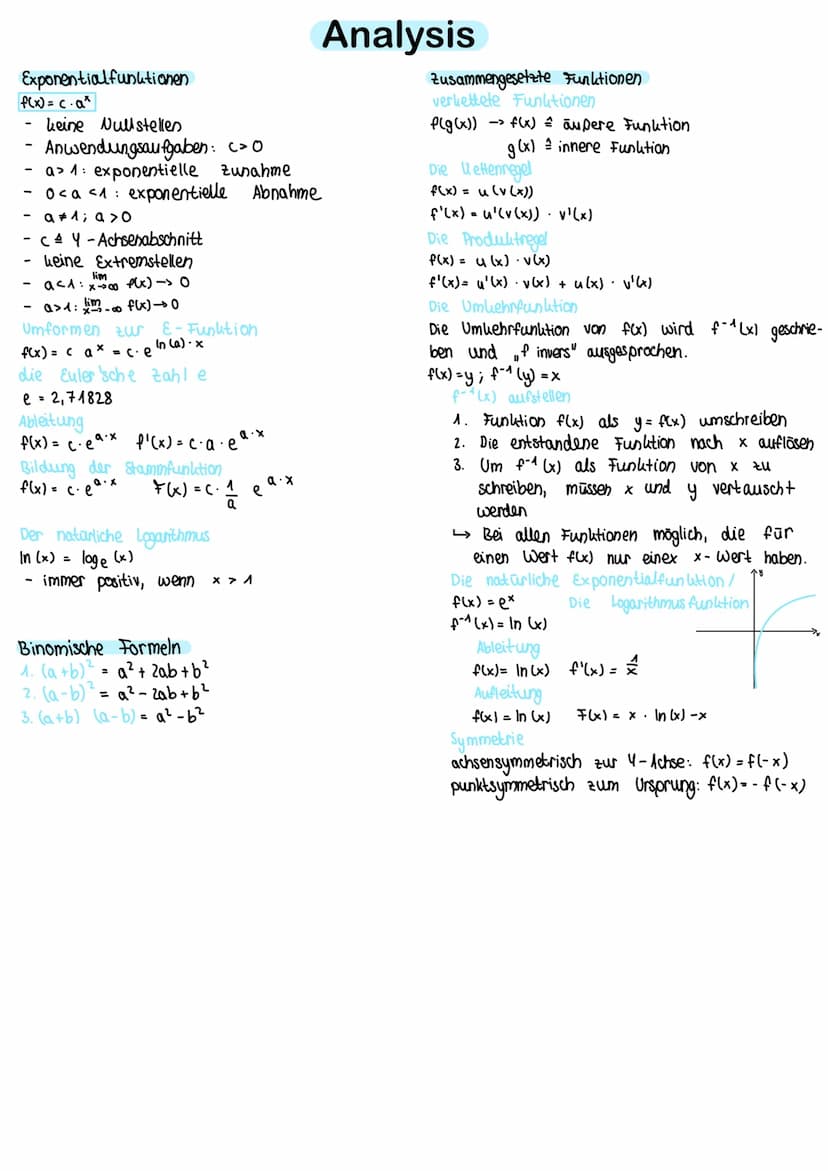 Analysis
Exponentialfunktionen
f(x) = c · a^x
- keine Nullstellen
- Anwendungsaufgaben: c > 0
- a > 1: exponentielle Zunahme
- 0 < a < 1 : exponentielle Abnahme
- a ≠ 1; a > 0
- c ≙ Y - Achsenabschnitt
- keine Extremstellen
- a < 1: lim x→∞ f(x) → 0
- a > 1: lim x→-∞ f(x) → 0
Umformen zur E - Funktion
f(x) = c a^x = c · e^(ln(a) · x)
die Euler'sche Zahl e
e = 2,71828
Ableitung
f(x) = c · e^(a·x) f'(x) = c · a · e^(a·x)
Bildung der Stammfunktion
f(x) = c · e^(a·x) F(x) = c · 1/a e^(a·x)
Der natürliche Logarithmus
ln (x) = log_e (x)
- immer positiv, wenn x > 1
Binomische Formeln
1. (a+b)² = a² + 2ab + b²
2. (a-b)² = a² - 2ab + b²
3. (a+b) (a-b) = a² - b²
Zusammengesetzte Funktionen
verkettete Funktionen
f(g(x)) -> f(x) ≙ äußere Funktion
g(x) ≙ innere Funktion
Die Kettenregel
f(x) = u(v(x))
f'(x) = u'(v(x)) · v'(x)
Die Produktregel
f(x) = u(x) · v(x)
f'(x) = u'(x) · v(x) + u(x) · v'(x)
Die Umkehrfunktion
Die Umkehrfunktion von f(x) wird f⁻¹(x) geschrie-
ben und „f invers" ausgesprochen.
f(x) = y ; f⁻¹(y) = x
f⁻¹(x) aufstellen
1. Funktion f(x) als y = f(x) umschreiben
2. Die entstandene Funktion nach x auflösen
3. Um f⁻¹(x) als Funktion von x zu
schreiben, müssen x und y vertauscht
werden
↳ Bei allen Funktionen möglich, die für
einen Wert f(x) nur einex x- Wert haben.
Die natürliche Exponentialfunktion /
f(x) = e^x Die Logarithmusfunktion
f⁻¹(x) = ln (x)
y
x
Ableitung
f(x) = ln (x) f'(x) = 1/x
Aufleitung
f(x) = ln (x) F(x) = x · ln (x) - x
Symmetrie
achsensymmetrisch zur Y - Achse: f(x) = f(-x)
punktsymmetrisch zum Ursprung: f(x) = - f(-x)